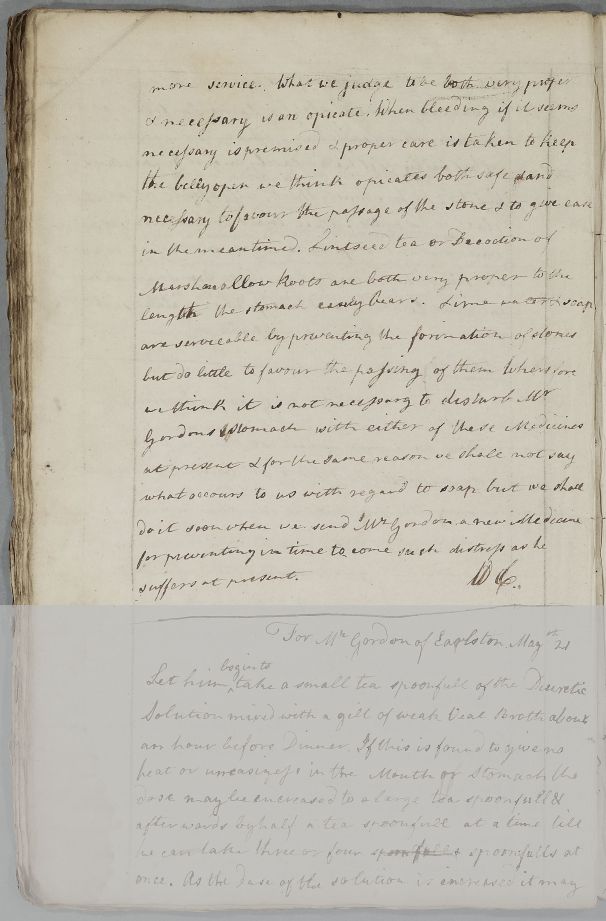 more service. What we judge to be both very proper
& necessary is an opicate. When bleeding if it seems
necessary is premised & proper care is taken to keep
the belly open we think opicates both safe and
necessary to favour the passage of the stone & to give ease
in the meantime. Lintseed tea or Decoction of
Marshmallow Roots are both very proper to the
length the stomach easily bears. Lime water & soap
are serviceable by preventing the formation of stones
but do little to favour the passing of them Wherefore
we think it is not necessary to disturb Mr
Gordons stomach with either of these Medicines
at present & for the same reason we shall not say
what occurs to us with regard to soap but we shall
do it soon when we send Mr Gordon a new Medicine
for preventing in time to come such distress as he
suffers at present. W C.
For Mr Gordon of Earlston May 21
begin to
Let him take a small tea spoonfull of the Diuretic
Solution mixed with a gill of weak Veal Broth about
an hour before Dinner. If this is found to give no
heat or uneasiness in the Mouth or Stomach the
dose may be encreased to a large tea spoonfull &
afterwards by half a tea spoonfull at a time till
he can take three or four spoonfulls at
once. As the dose of the solution is encreased it may